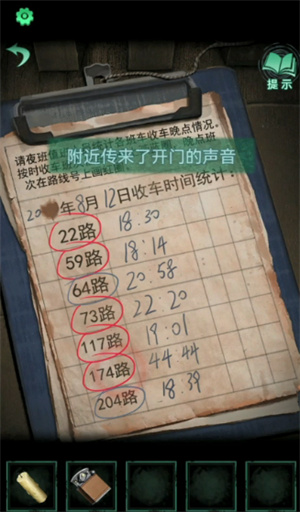 提示
请夜班
各班车收车晚点情况。
按时收车
晚点班
次在路线号上画
附近传来了开门的声音
年8月12日收车时间统计:
22路 18.30
59路 18:14
64路 20.58
73路 22.20
117路 19:01
174路 44:44
204路 18.39